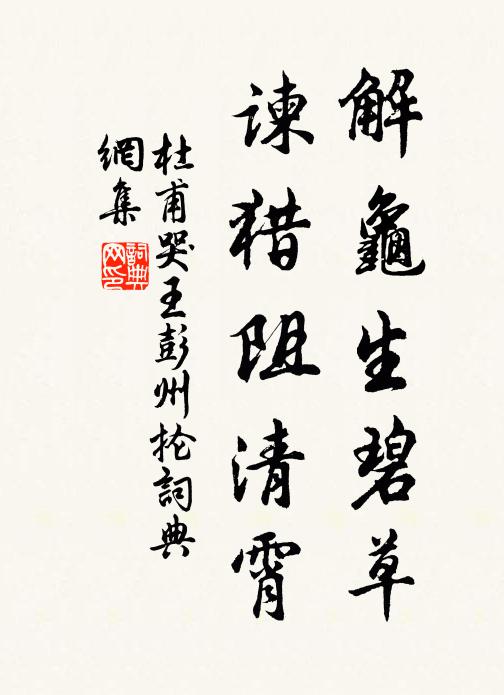 解龜生碧草
谏猎阻清霄
杜甫哭王彭州抡詞典
網集
詞典
网印